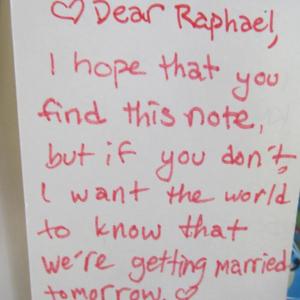 ♡ Dear Raphael,
I hope that you
find this note,
but if you don't,
I want the world
to know that
we're getting married
tomorrow. ♡